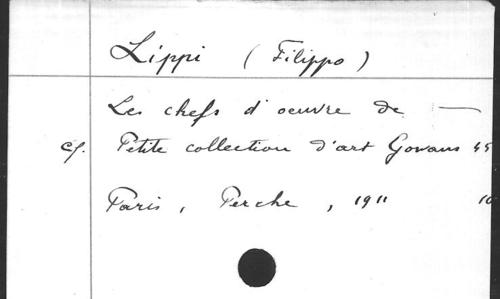 Lippi (Filippo)
Les chefs d'oeuvre de —
Cf. Petite collection d'art Gowans 45
Paris, Perche, 1911 10